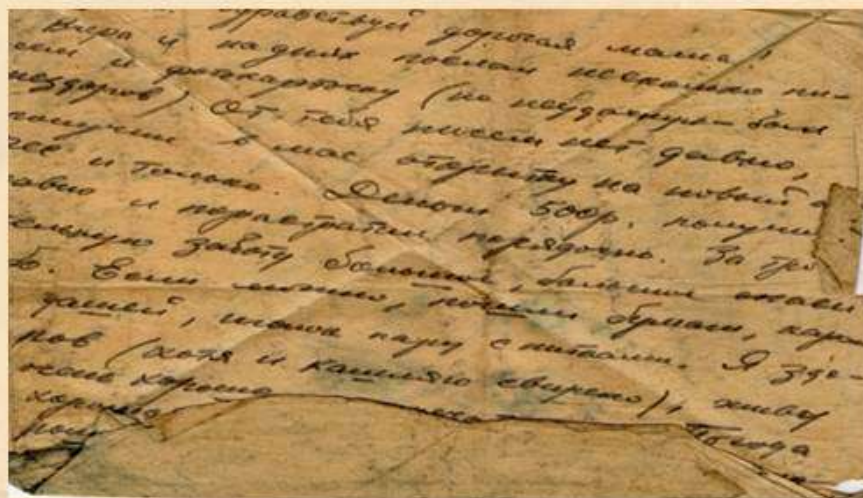 Здравствуй дорогая мама!
Вчера и на днях послал несколько пи-
сем и фотокарточку (но неудачную – был
нездоров). От тебя писем нет давно,
получил в мае открытку на новый а
и только. Деньги 500р. получил
давно и порастратил порядочно. За
заботу большое, большое спаси
бо. Если можно, пошли бумаги, каран
дашей, иголок пару с нитками. Я здо-
ров (хотя и кашляю свирепо), живу
хорошо
Погода